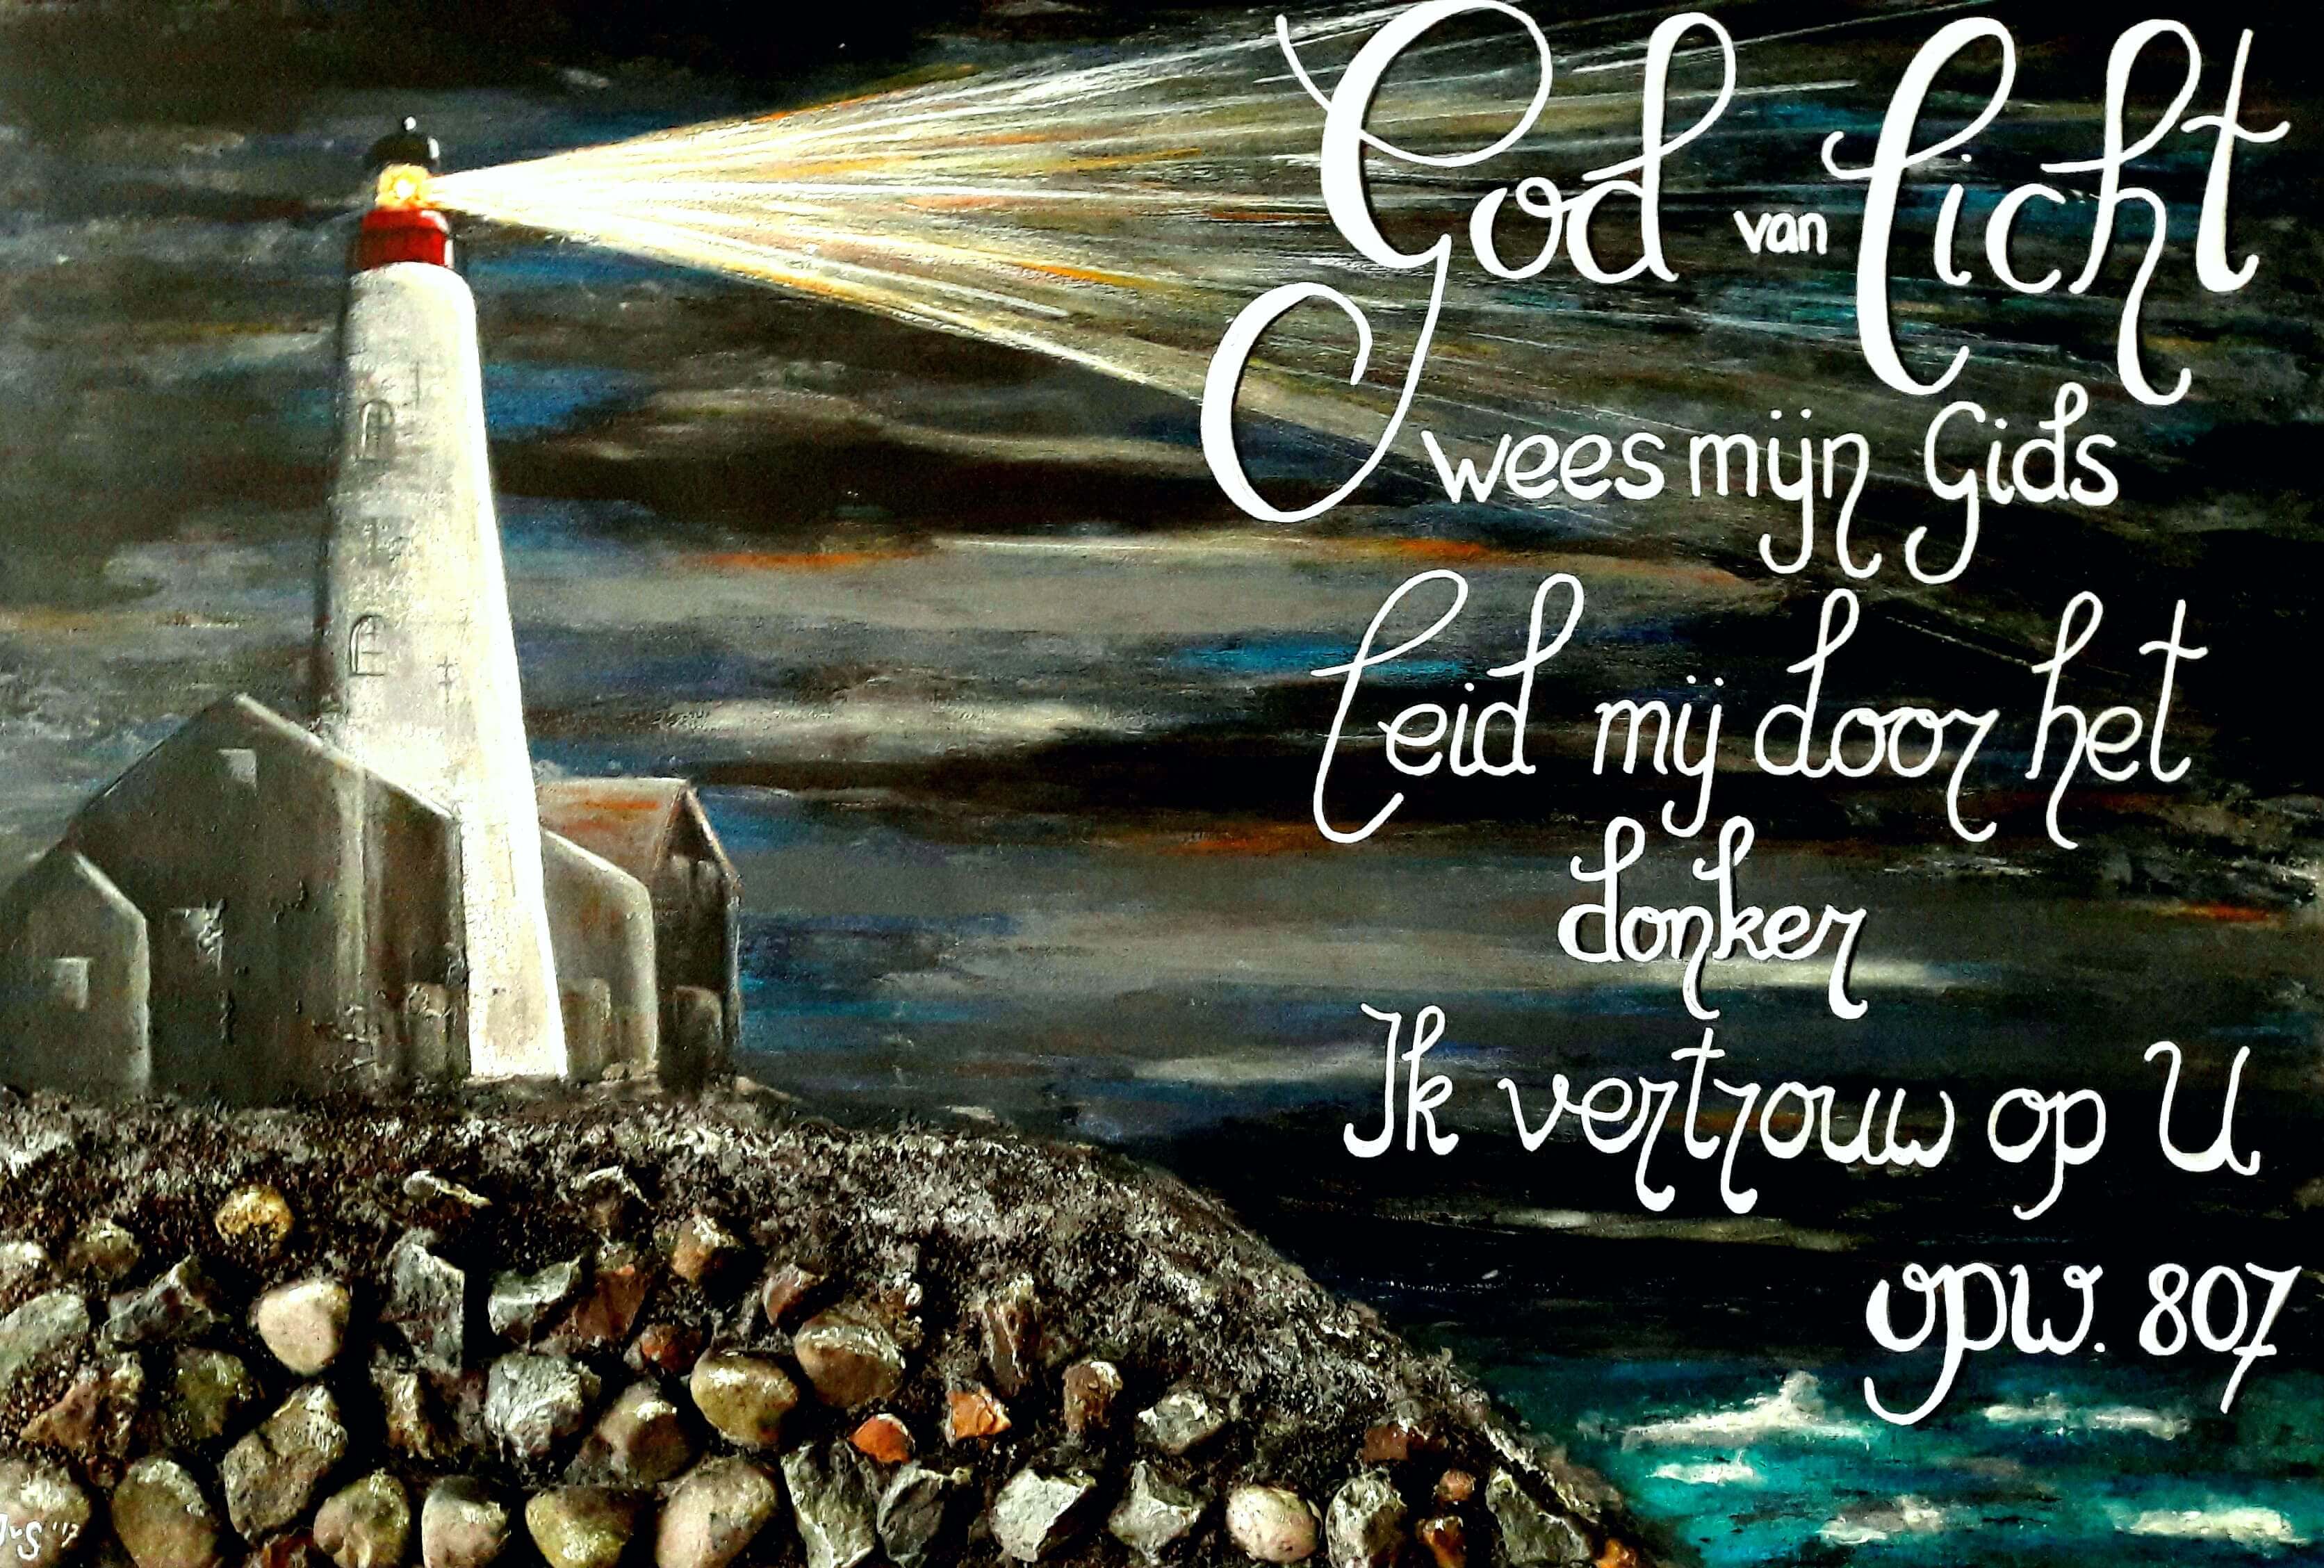 God van licht
wees mijn Gids
leid mij door het
donker
Ik vertrouw op U
opw. 807
JvS '17